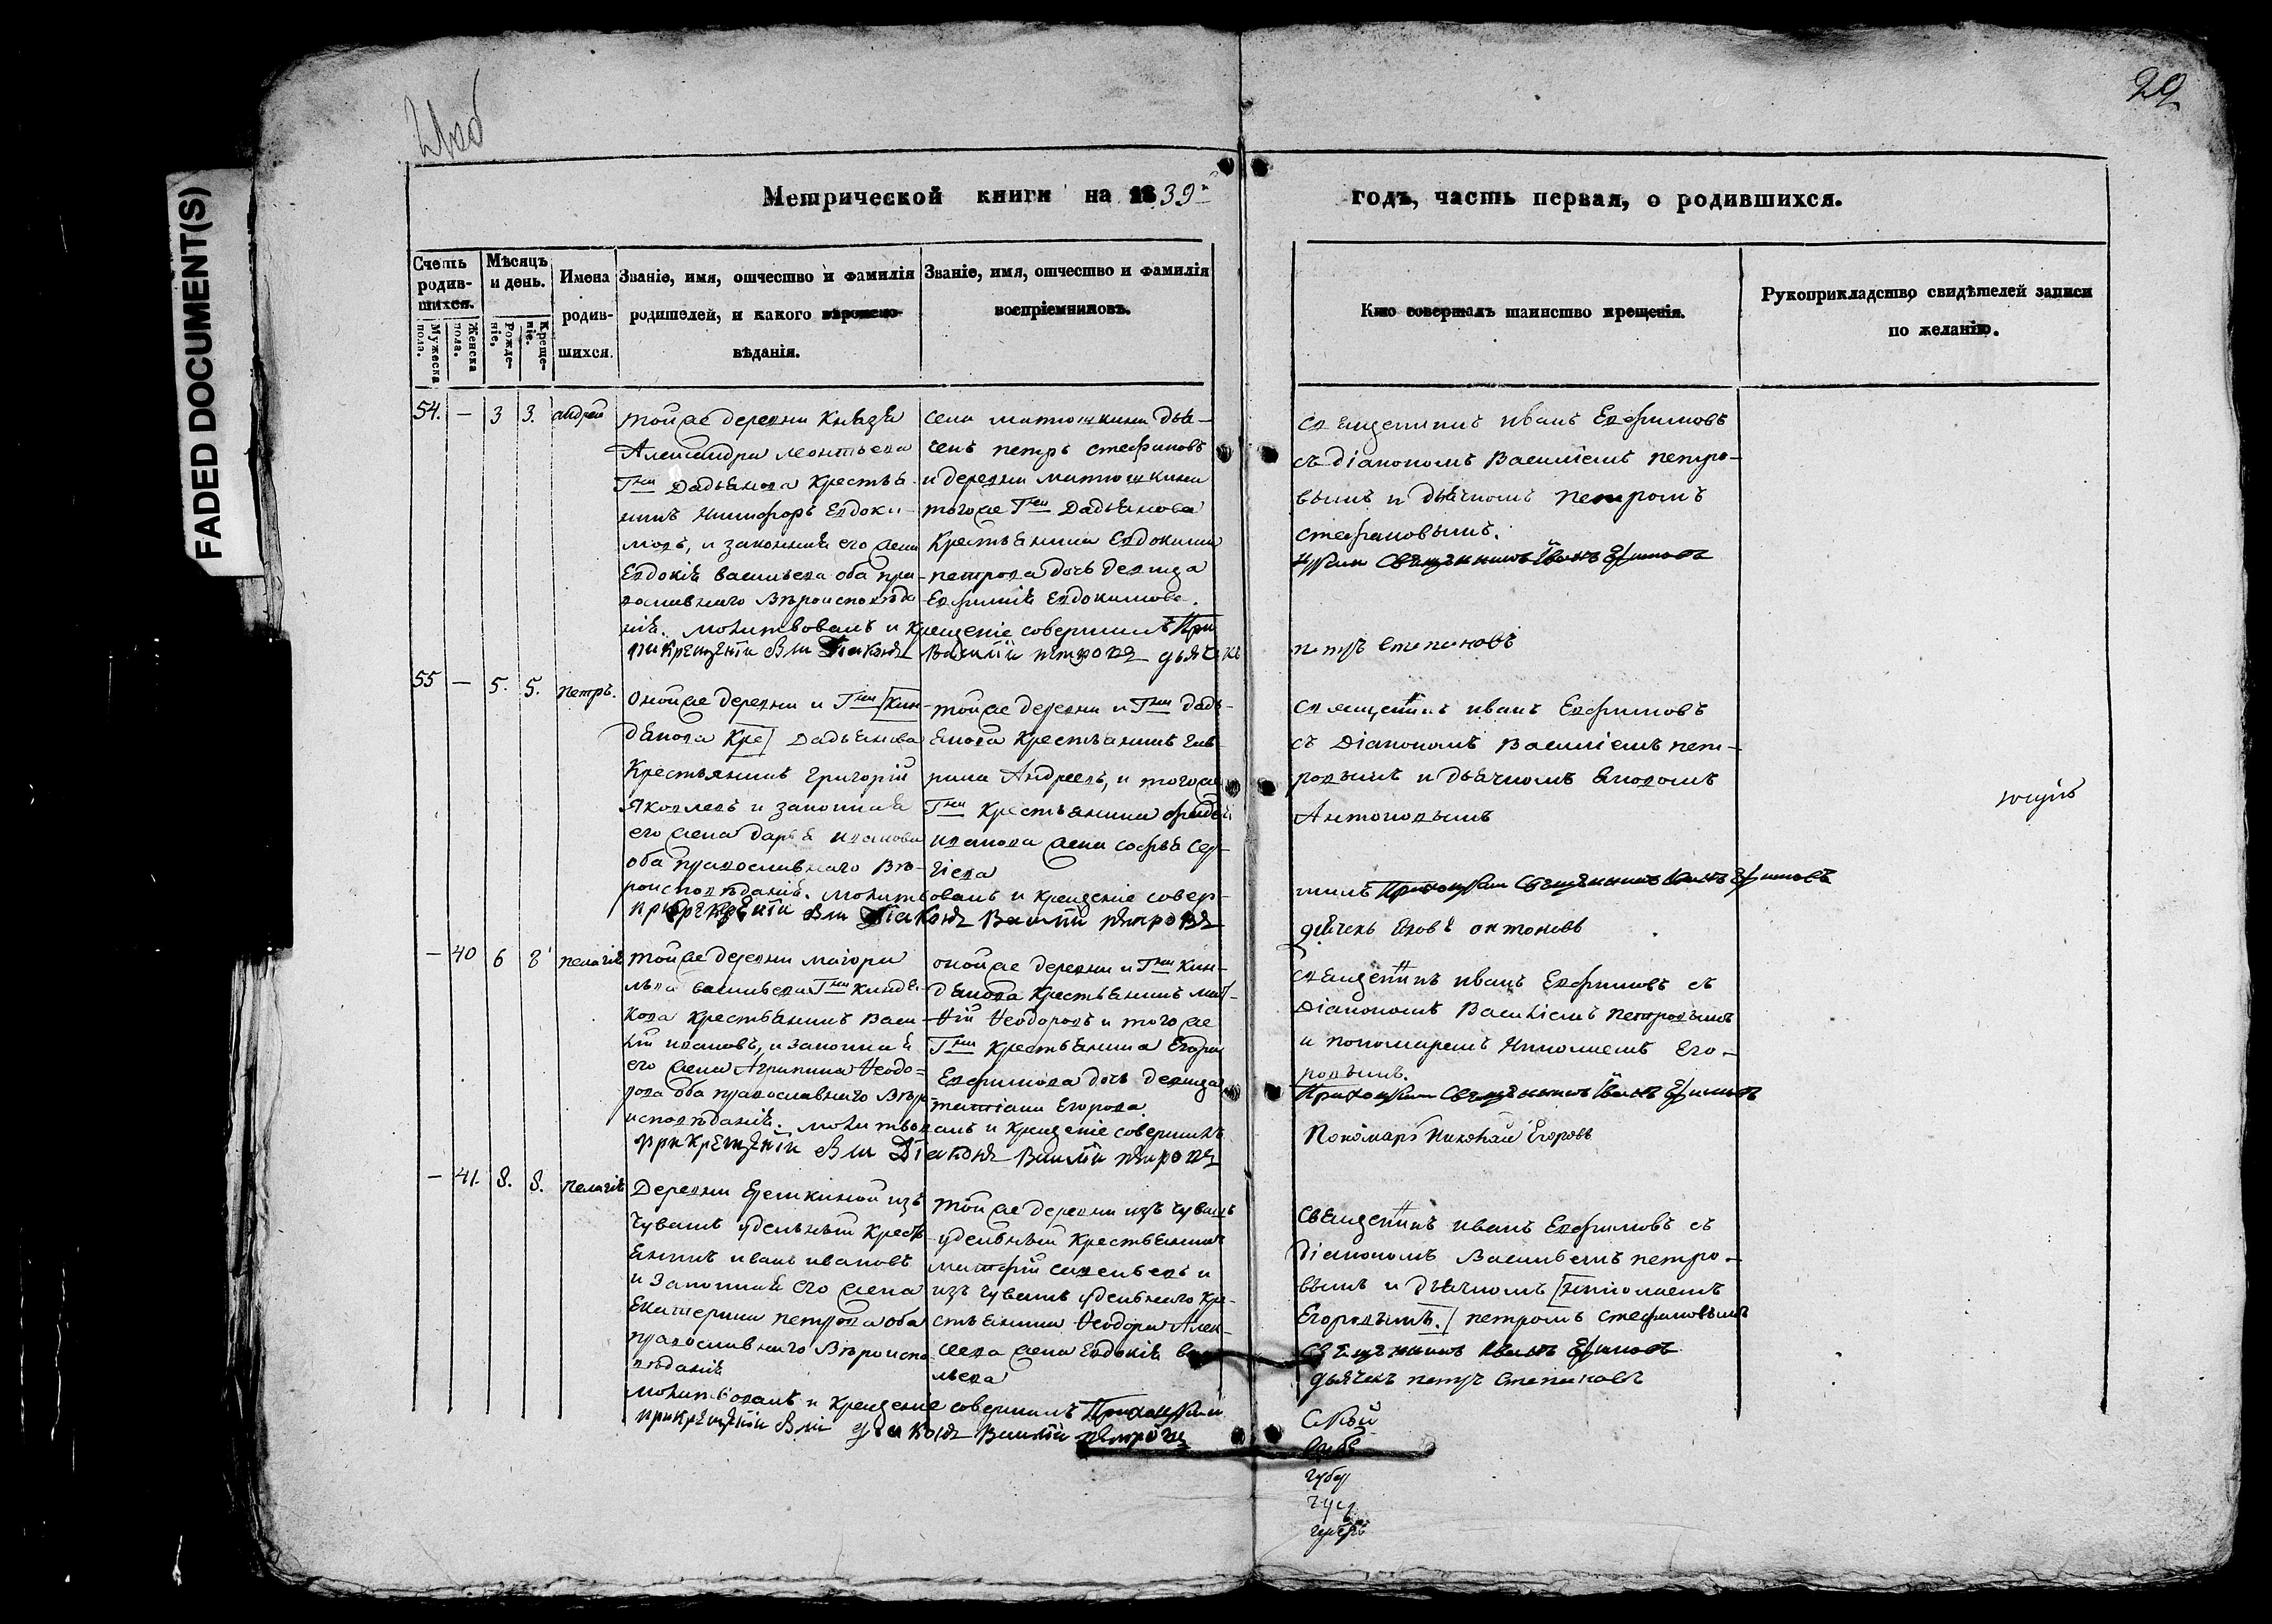 FADED DOCUMENT(S)
29
Метрической книги на 1839
годъ, часть первая, о родившихся.
Счетъ родив-шихся.
Мужеска пола.
Женска пола.
Мѣсяцъ и день.
Рожде-ніе.
Креще-ніе.
Имена родив-шихся.
Званіе, имя, отчество и фамилія
родителей, и какого вѣроиспо-
вѣданія.
Званіе, имя, отчество и фамилія
воспріемниковъ.
Кто совершалъ таинство крещенія.
Рукоприкладство свидѣтелей записи
по желанію.
54. — 3 3. андрей
тойже деревни Князя
Александра Леонтьева
Гна Дадьянова Крестья-
нинъ Никифоръ Евдоки-
мовъ, и законная его жена
Евдокія васильева оба пра-
вославнаго Вѣроисповѣда
нія. молитвовалъ и крещеніе совершилъ При
села матюшкина дья-
чекъ петръ стефановъ
и деревни матюшкина
тогоже Гна Дадьянова
Крестьянина Евдокима
петрова дочь девица
Евфимія Евдокимова.
при крещеніи былъ Діаконъ Василій петровъ дьячекъ
священникъ иванъ Евфимовъ
съ діакономъ Василіемъ петро-
вымъ и дьячкомъ петромъ
стефановымъ.
Священникъ Іванъ Ефимовъ
петръ степановъ
55 — 5. 5. петръ.
Онойже деревни и Гна [Кин-
дякова Кре] Дадьянова
Крестьянинъ Григорій
Яковлевъ и законная
его жена дарья иванова
оба православнаго Вѣ-
роисповѣданія. молитвовалъ и крещеніе совер-
тойже деревни и Гна дадь-
янова Крестьянинъ гав-
рила Андреевъ, и тогоже
Гна Крестьянина
иванова жена софья Сер-
гіева
при крещеніи былъ Діаконъ Василій петровъ
священникъ иванъ Евфимовъ
съ Діакономъ Василіемъ пет-
ровымъ и дьячкомъ яковомъ
Антоновымъ
шилъ Священникъ Іванъ Ефимовъ
дьячекъ яковъ антоновъ
— 40 6 8 пелагія
тойже деревни маіора
льва васильева Гна Киндя-
кова Крестьянинъ Васи-
лій ивановъ, и законная
его жена Агрипина Ѳеодо-
рова оба православнаго Вѣро-
исповѣданія. молитвовалъ и крещеніе совершилъ
онойже деревни и Гна Кин-
дякова Крестьянинъ мат-
ѳій Ѳеодоровъ и тогоже
Гна Крестьянина Егора
Евфимова дочь девица
татіана Егорова.
при крещеніи былъ Діаконъ Василій петровъ
священникъ иванъ Евфимовъ съ
Діакономъ Василіемъ петровымъ
и пономаремъ Николаемъ Его-
ровымъ.
Священникъ Іванъ Ефимовъ
Пономарь Николай Егоровъ
— 41. 8. 8. пелагія
Деревни Ерешкиной изъ
Чувашъ удельный Кресть
янинъ иванъ ивановъ
и Законная его жена
Екатерина петрова оба
православнаго Вѣроиспо-
вѣданія
молитвовалъ и крещеніе совершилъ
тойже деревни изъ чувашъ
удельный Крестьянинъ
матфій савельевъ и
изъ чувашъ удельнаго Кре-
стьянина Ѳеодора Алек-
сеева жена Евдокія васи
льева
при крещеніи былъ діаконъ Василій петровъ
священникъ иванъ Евфимовъ съ
діакономъ Васильемъ петро-
вымъ и дьячкомъ [николаемъ
Егоровымъ.] петромъ стефановымъ
Священникъ Іванъ Ефимовъ
дьячекъ петръ степановъ